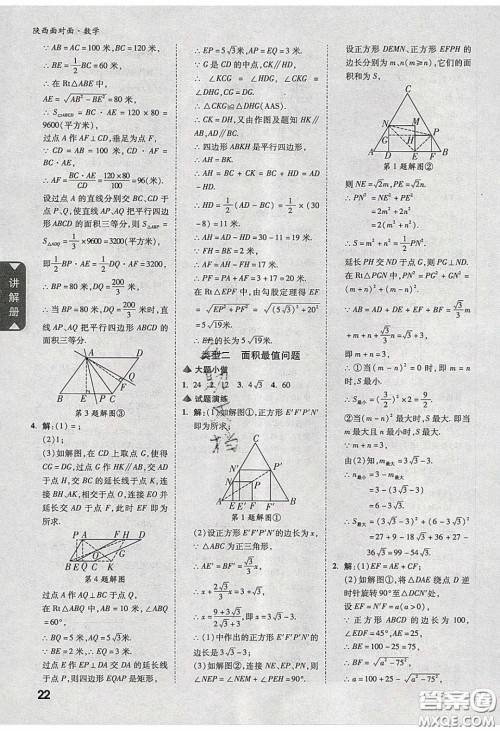 陕西面对面·数学
∵AB=AC=100米,BC=120米,
∴BE=1/2BC=60米,
∴在Rt△ABE中,
AE=√(AB²-BE²)=80米,
∴S▱ABCD=BC·AE=120×80=
9600(平方米),
过点A作AF⊥CD,垂足为点F,
∵CD=AB=100米,CD·AF=
BC·AE,
∴AF=(BC·AE)/CD=(120×80)/100=96(米).
设过点A的直线分别交BC、CD于
点P、Q,使直线AP、AQ把平行四边
形ABCD的面积三等分,则S△ABP=
S△ADQ=1/3×9600=3200(平方米),
即1/2BP·AE=1/2DQ·AF=3200,
∴BP=80米,DQ=200/3米,
∴当BP=80米,DQ=200/3米时,直
线AP、AQ把平行四边形ABCD的
面积三等分.
第3题解图③
4. 解:(1)=;
(2)1;
(3)如解图,在CD上取点G,使得
CG=DG,过点G作HK∥AB,交
AD于点H、交BC的延长线于点K,连
接BH、AK,相交于点O,连接EO并
延长交AD于点F,此时EF即为所
求.
第4题解图
过点A作AQ⊥BC于点Q,
在Rt△ABQ中,AB=10米,∠ABQ
=60°,
∴BQ=5米,AQ=5√3米,
过点E作EP⊥DA交DA的延长线
于点P,则四边形EQAP是矩形,
∴EP=5√3米,PA=EQ=3米.
∵G是CD的中点,
∴CG=DG.
∵∠KCG=∠HDG,∠CGK=
∠DGH,
∴△KCG≌△DHG(AAS).
∴CK=DH,又由作图及题知HK∥
AB,AH∥BK,
∴四边形ABKH是平行四边形.
∴AH=BK.
∴AH=BC+CK=BC+HD=AD
-HD.
∴HD=1/2(AD-BC)=1/2×(30
-8)=11米.
∴AH=AD-HD=30-11=19米.
∴AF=BE=17米.
∴PF=PA+AF=3+17=20米.
在Rt△EPF中,由勾股定理得EF=
√(EP²+PF²)=√((5√3)²+20²)=
5√19米.
∴EF的长为5√19米.
类型二 面积最值问题
大题小做
1. 24 2. 12 3. 4√3 4. 60
试题演练
1. 解:(1)如解图①,正方形E′F′P′N′
即为所求;
第1题解图①
(2)设正方形E′F′P′N′的边长为x,
∵△ABC为正三角形,
∴AE′=BF′=√3/3x,
∴x+2√3/3x=3+√3,
∴x=(9+3√3)/(2√3+3),即x=3√3-3,
∴正方形E′F′P′N′的边长为3√3-3;
(3)如解图②,连接NE、EP、PN,则
∠NEP=90°,
设正方形DEMN、正方形EFPH的
边长分别为m、n(m≥n),它们的面
积和为S,
第1题解图②
则NE=√2m,PE=√2n,
∴PN²=NE²+PE²
=2m²+2n²
=2(m²+n²).
∴S=m²+n²=1/2PN²,
延长PH交ND于点G,则PG⊥ND.
在Rt△PGN中,PN²=PG²+GN²=
(m+n)²+(m-n)²,
∵√3/3m+m+n+√3/3n=√3+3,
即m+n=3,
∴①当(m-n)²=0时,即m=n时,S最
小,
∴S最小=1/2×3²=9/2;
②当(m-n)²最大时,S最大,即当m
最大且n最小时,S最大.
∵m+n=3,
由(2)知,m最大=3√3-3.
∴n最小=3-m最大
=3-(3√3-3)
=6-3√3.
∴S最大=(3√3-3)²+(6-3√3)²
=27+9-18√3+36+27-
36√3=99-54√3.
2. 解:(1)EF=AE+CF;
(2)如解图①,将△DAE绕点D逆
时针旋转90°至△DCN′处.
设EF=N′F=a(a>0),
∵正方形ABCD的边长为100,
∠EDF=45°,AE=25,
∴BE=75,
∴BF=√(a²-75²),
∴a=100+25-√(a²-75²),
讲解册
22
答案圈
MXQE.COM